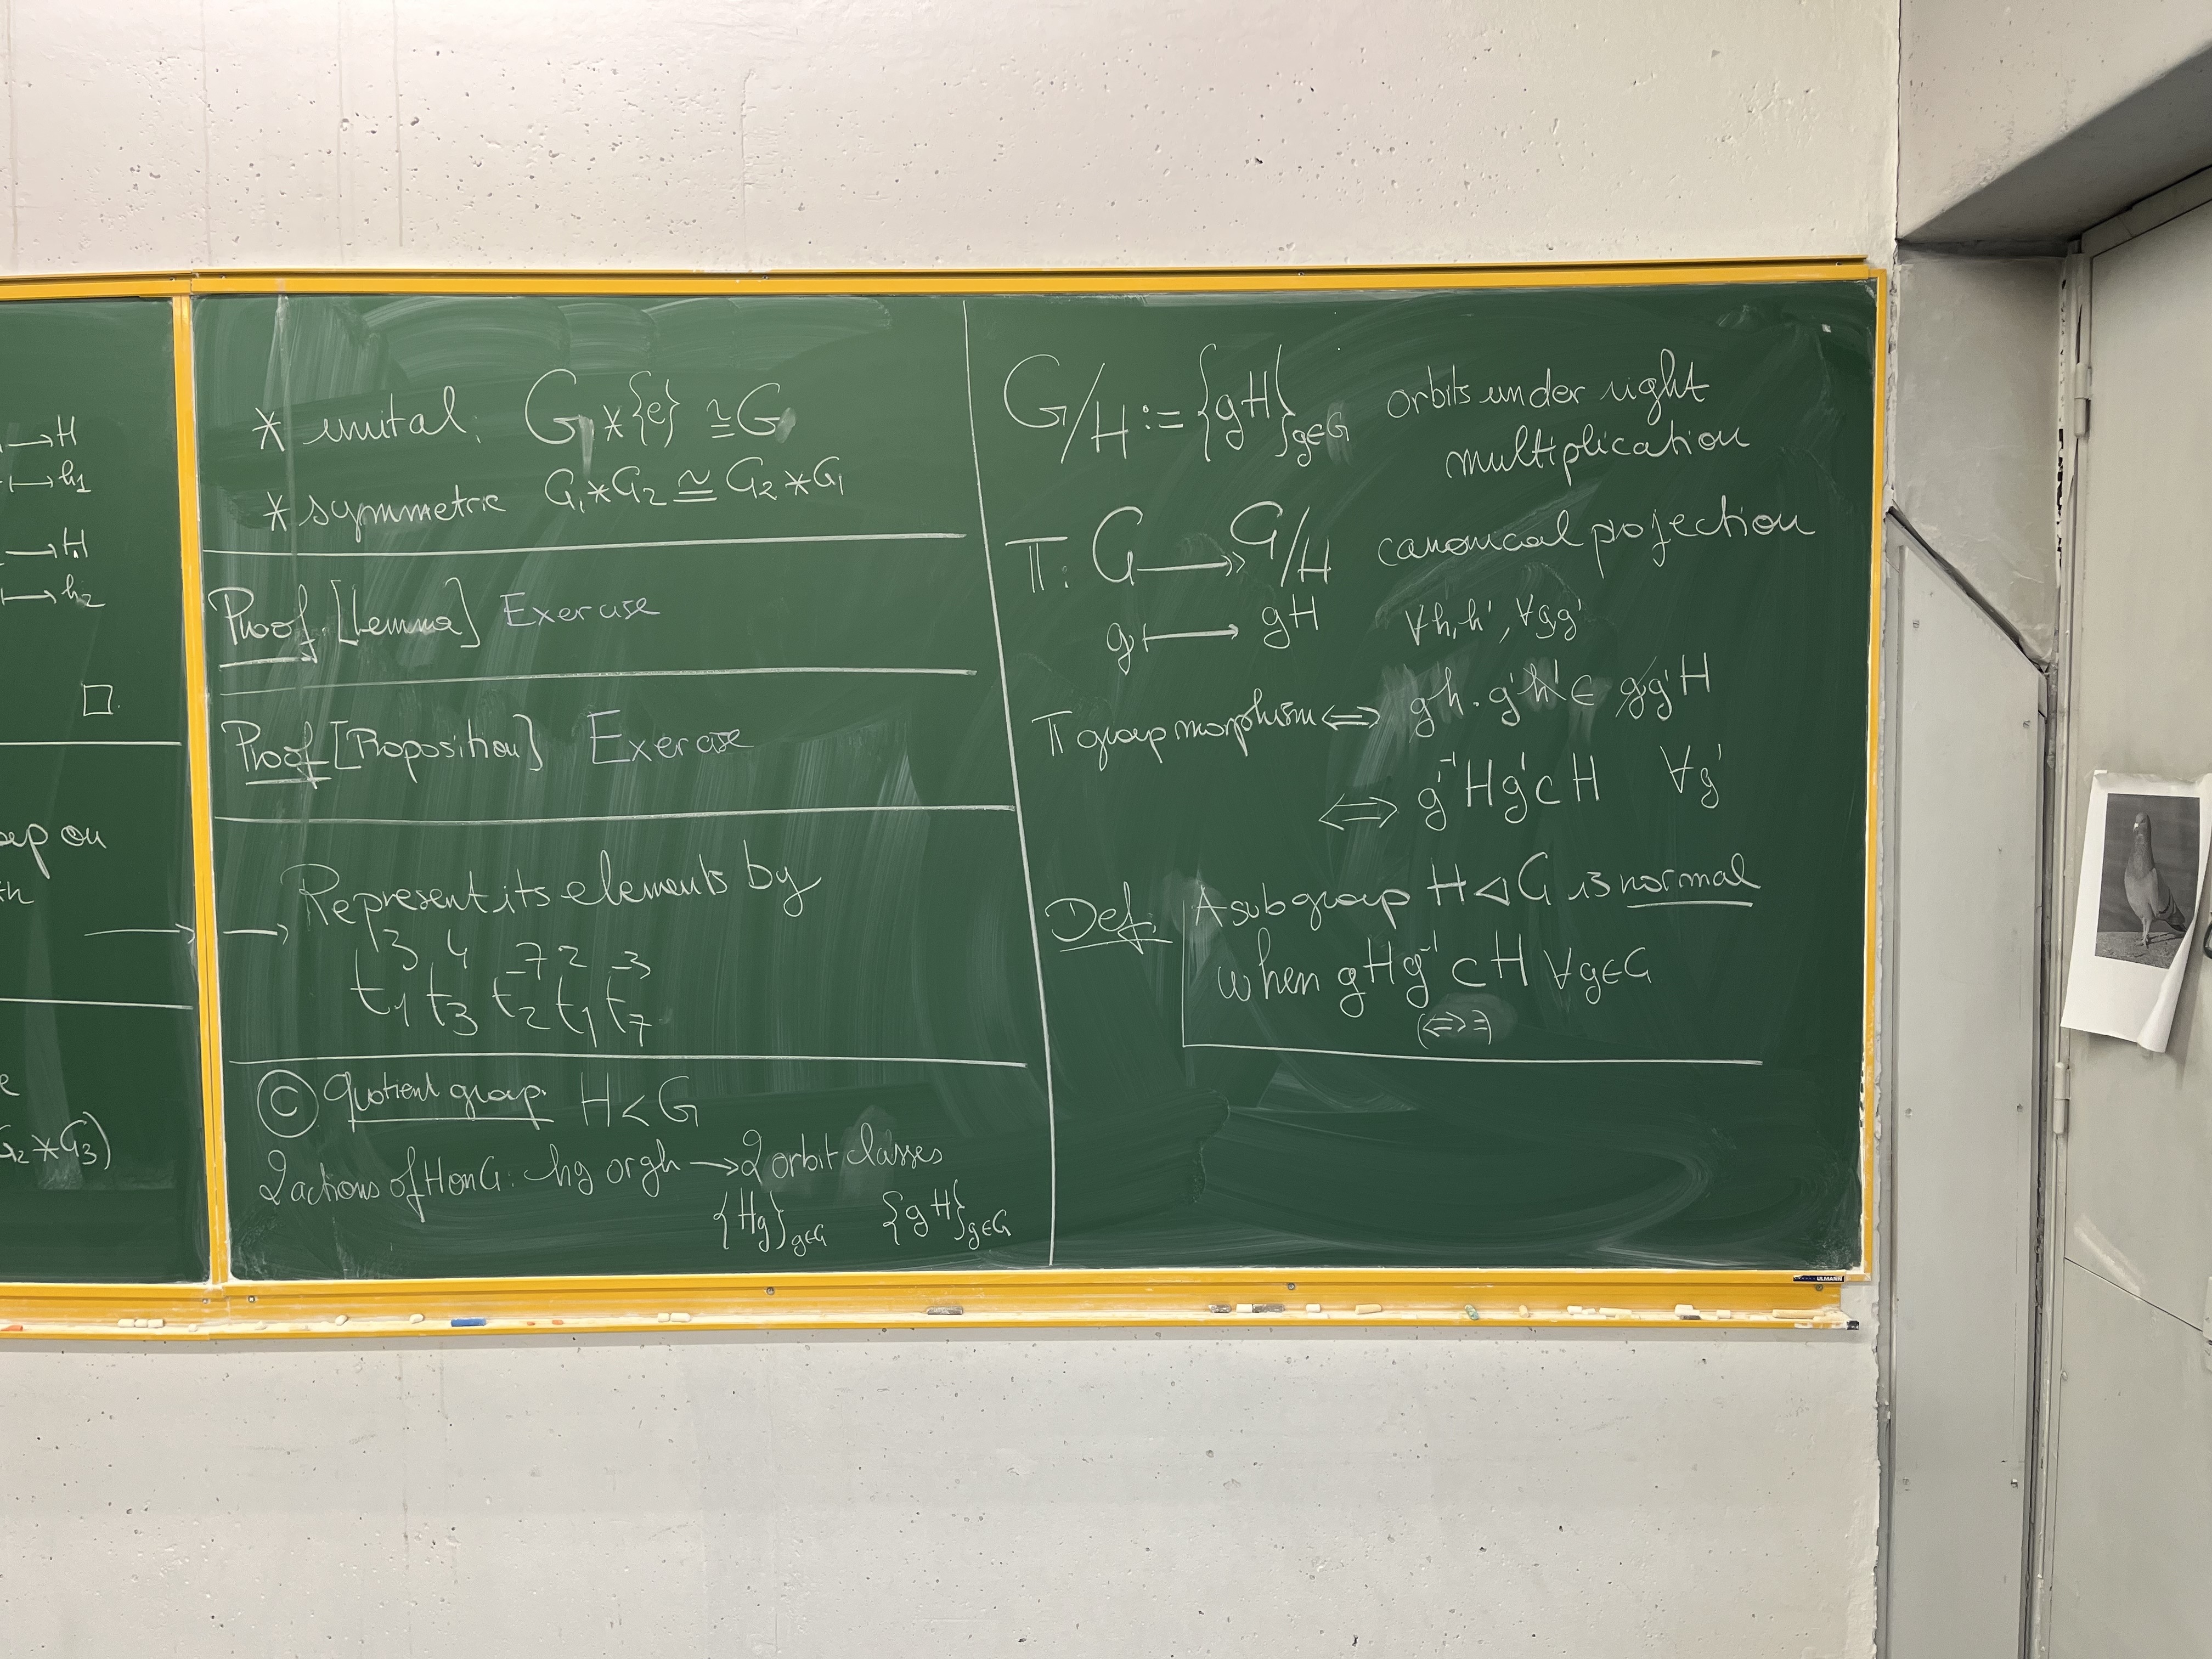 → H
↦ h₁
→ H
↦ h₂
□.
on
→
G₂ * G₃)
* unital: G * {e} ≅ G
* symmetric G₁ * G₂ ≅ G₂ * G₁
Proof. [Lemma] Exercise
Proof [Proposition] Exercise
→ Represent its elements by
t₁³ t₃⁴ t₂⁻⁷ t₁² t₇⁻³
Ⓒ Quotient group. H < G
2 actions of H on G: hg or gh → 2 orbit classes
{Hg}g∈G {gH}g∈G
G/H := {gH}g∈G orbits under right
multiplication
π: G ↠ G/H canonical projection
g ↦ gH ∀h,h', ∀g,g'
π group morphism ⇔ gh · g'h' ∈ gg'H
⇔ g'⁻¹Hg' ⊂ H ∀g'
Def: A subgroup H ◁ G is normal
when gHg⁻¹ ⊂ H ∀g∈G
(⇔ =)
ULMANN